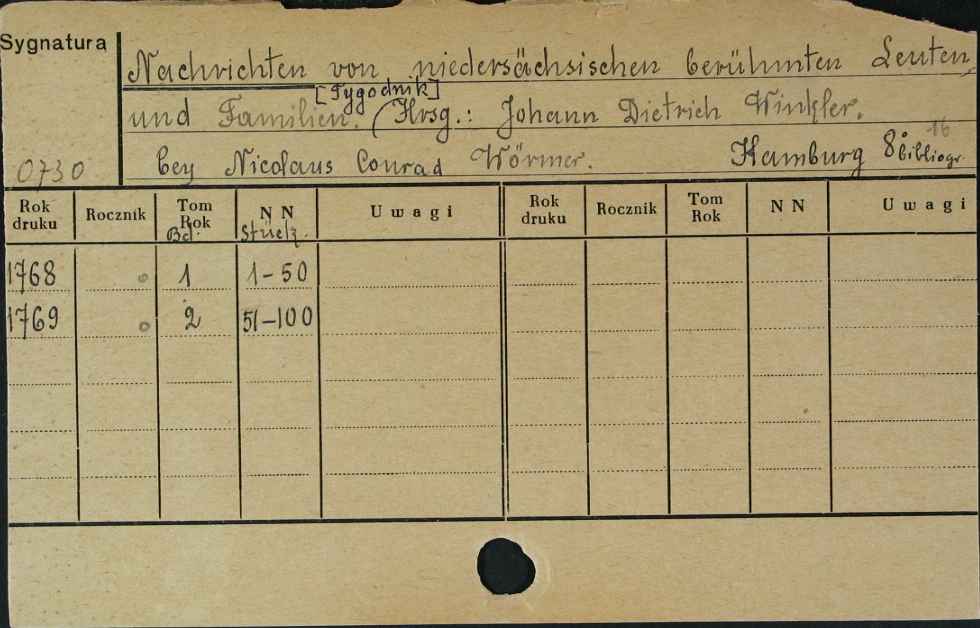 Sygnatura
Nachrichten von niedersächsischen berühmten Leuten
[Tygodnik]
und Familien. (Hrsg.: Johann Dietrich Winkler.
16
0730 bey Nicolaus Conrad Wörmer. Hamburg 8° bibliogr.
Rok druku Rocznik Tom Rok NN Uwagi Rok druku Rocznik Tom Rok NN Uwagi
Bd.
1768 1 1-50
1769 2 51-100